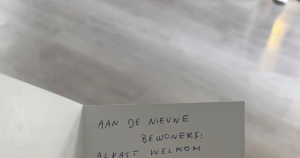 AAN DE NIEUWE
BEWONERS!
ALVAST WELKOM